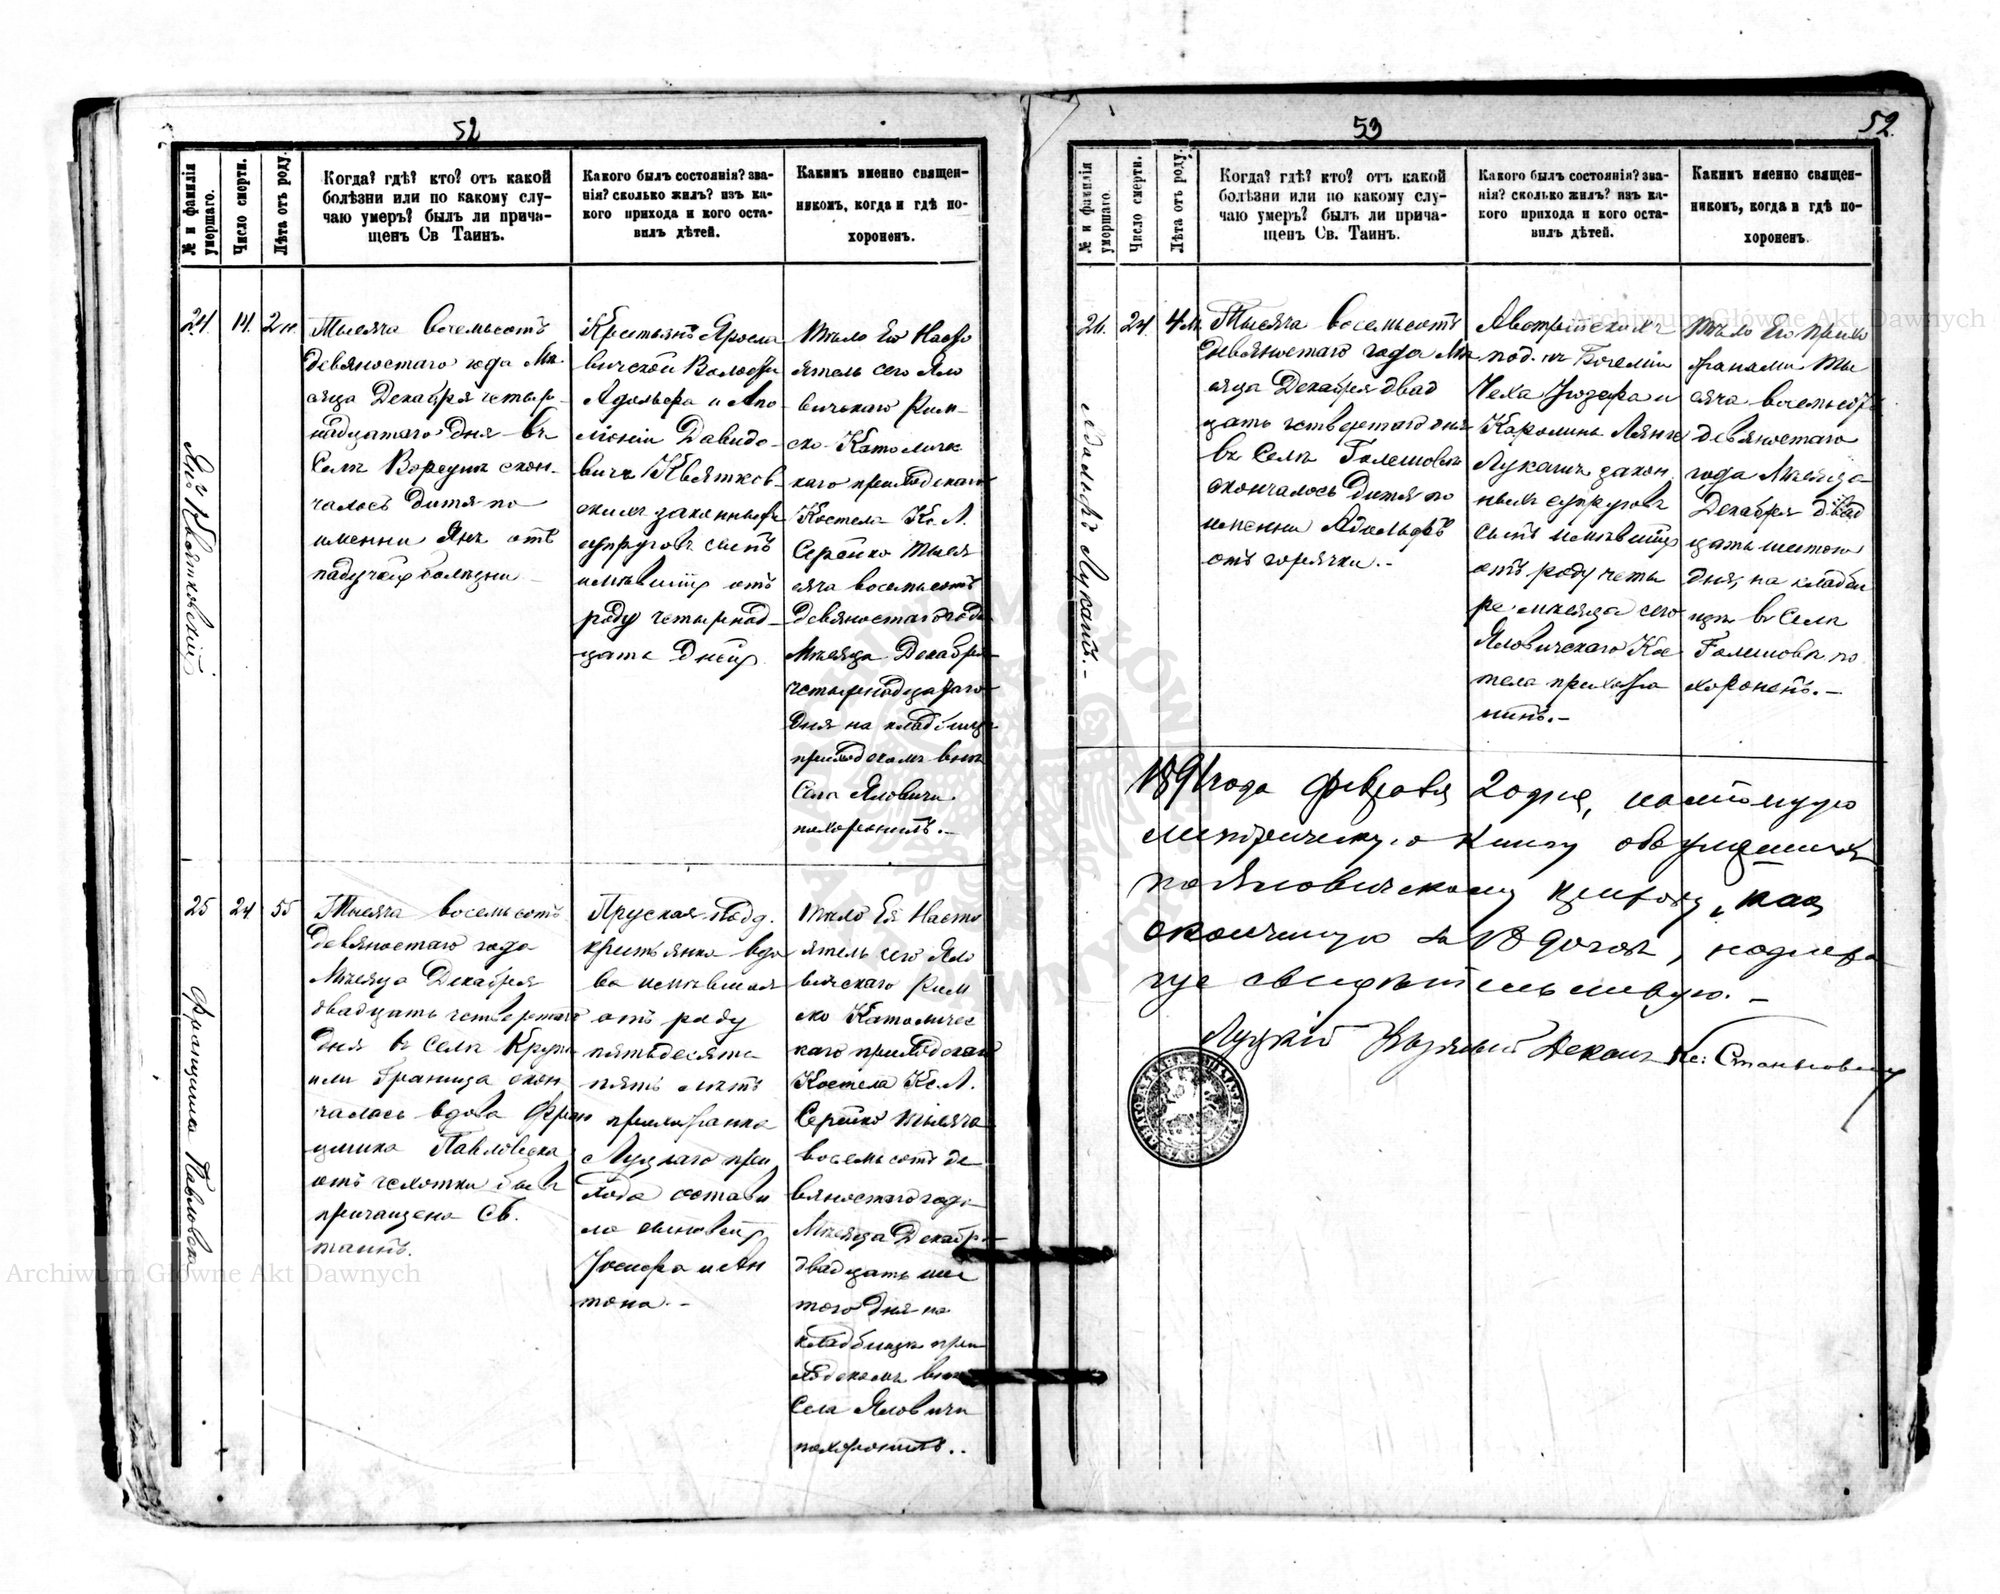 52
№ и фамилія умершаго.
Число смерти.
Лѣта отъ роду.
Когда? гдѣ? кто? отъ какой
болѣзни или по какому слу-
чаю умеръ? былъ ли прича-
щенъ Св Таинъ.
Какого былъ состоянія? зва-
нія? сколько жилъ? изъ ка-
кого прихода и кого оста-
вилъ дѣтей.
Какимъ именно священ-
никомъ, когда и гдѣ по-
хороненъ.
24
Янъ Квятковскій
14.
2 н.
Тысяча восемьсотъ
девяностаго года Мѣ
сяца Декабря четыр-
надцатаго дня въ
Селѣ скон-
чалось дитя по
имени Янъ отъ
падучей болѣзни
Крестьянъ Яросла
вичской Волости
Адольфа и Апо
лоніи Давидо-
вичъ Квятков-
скихъ законныхъ
супруговъ сынъ
имѣвшій отъ
роду четырнад-
цать дней
тѣло Его Насто
ятель сего Яло
вичскаго Рим-
ско-Католичес
каго приходскаго
Костела Кс. Л.
Серейко тыся
сяча восемьсотъ
девяностаго года
Мѣсяца Декабря
четырнадцатаго
дня на кладбищѣ
приходскомъ внѣ
Села Яловичи
похоронилъ.-
25
Францишка Павловска
24
55
Тысяча восемьсотъ
девяностаго года
Мѣсяца Декабря
двадцать четвертаго
дня въ Селѣ Крупы
или Граница скон
чалась вдова Фран
цишка Павловска
отъ чахотки была
причащена Св.
таинъ.
Пруская подд.
крестьянка вдо
ва имѣвшая
отъ роду
пятьдесятъ
пять лѣтъ
прихожанка
Луцкаго при
хода остави
ла сыновей
Іосифа и Ан
тона.-
тѣло Ея Насто
ятель сего Яло
вичскаго Рим
ско Католичес
каго приходскаго
Костела Кс. Л.
Серейко тысяча
восемьсотъ де
вяностаго года
Мѣсяца Декабря
двадцать шес
таго дня на
кладбищѣ при
ходскомъ внѣ
Села Яловичи
похоронилъ..
53
52.
№ и фамилія умершаго.
Число смерти.
Лѣта отъ роду.
Когда? гдѣ? кто? отъ какой
болѣзни или по какому слу-
чаю умеръ? былъ ли прича-
щенъ Св. Таинъ.
Какого былъ состоянія? зва-
нія? сколько жилъ? изъ ка-
кого прихода и кого оста-
вилъ дѣтей.
Какимъ именно священ-
никомъ, когда и гдѣ по-
хороненъ.
26.
Адольфъ Лукашъ.-
24
4 м.
Тысяча восемьсотъ
девяностаго года Мѣ
сяца Декабря двад
цать четвертаго дня
въ Селѣ Голешовъ
скончалось Дитя по
имени Адольфъ
отъ горячки.-
Австрійскихъ
под. изъ Богеміи
Чеха Іозефа и
Каролины Лянге
Лукашъ закон
ныхъ супруговъ
сынъ имѣвшій
отъ роду четы
ре мѣсяца сего
Яловичскаго Кос
тела прихожа
нинъ.-
тѣло Его прихо
жанами Ты
сяча восемьсотъ
девяностаго
года Мѣсяца
Декабря двад
цать шестаго
дня, на кладби
щѣ въ Селѣ
Голешовъ по
хороненъ.-
1891 года Февраля 20 дня, настоящую
метрическую книгу объ умершихъ
по Яловичскому приходу, какъ
оконченную за 1890 годъ, подписью
свидѣтельствую.-
Луцкій Деканъ Кс: Станкевичъ
Archiwum Główne Akt Dawnych
Archiwum Główne Akt Dawnych